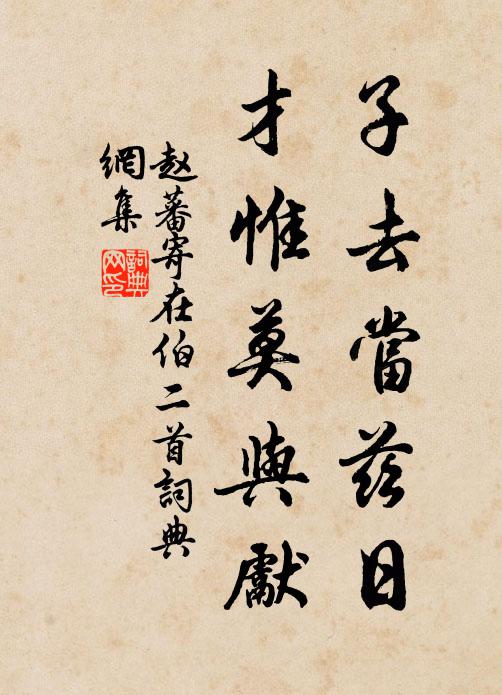 子去當茲日
才惟莫與獻
赵蕃寄在伯二首詞典
網集
詞典
网印